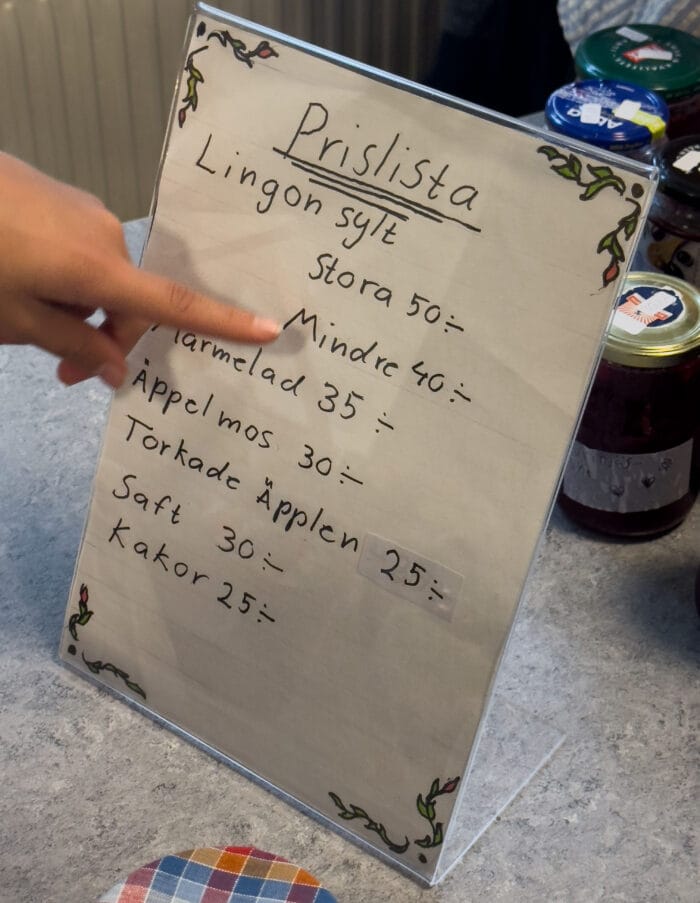 Prislista
Lingon sylt
Stora 50:-
Mindre 40:-
Marmelad 35:-
Äppelmos 30:-
Torkade Äpplen 25:-
Saft 30:-
Kakor 25:-